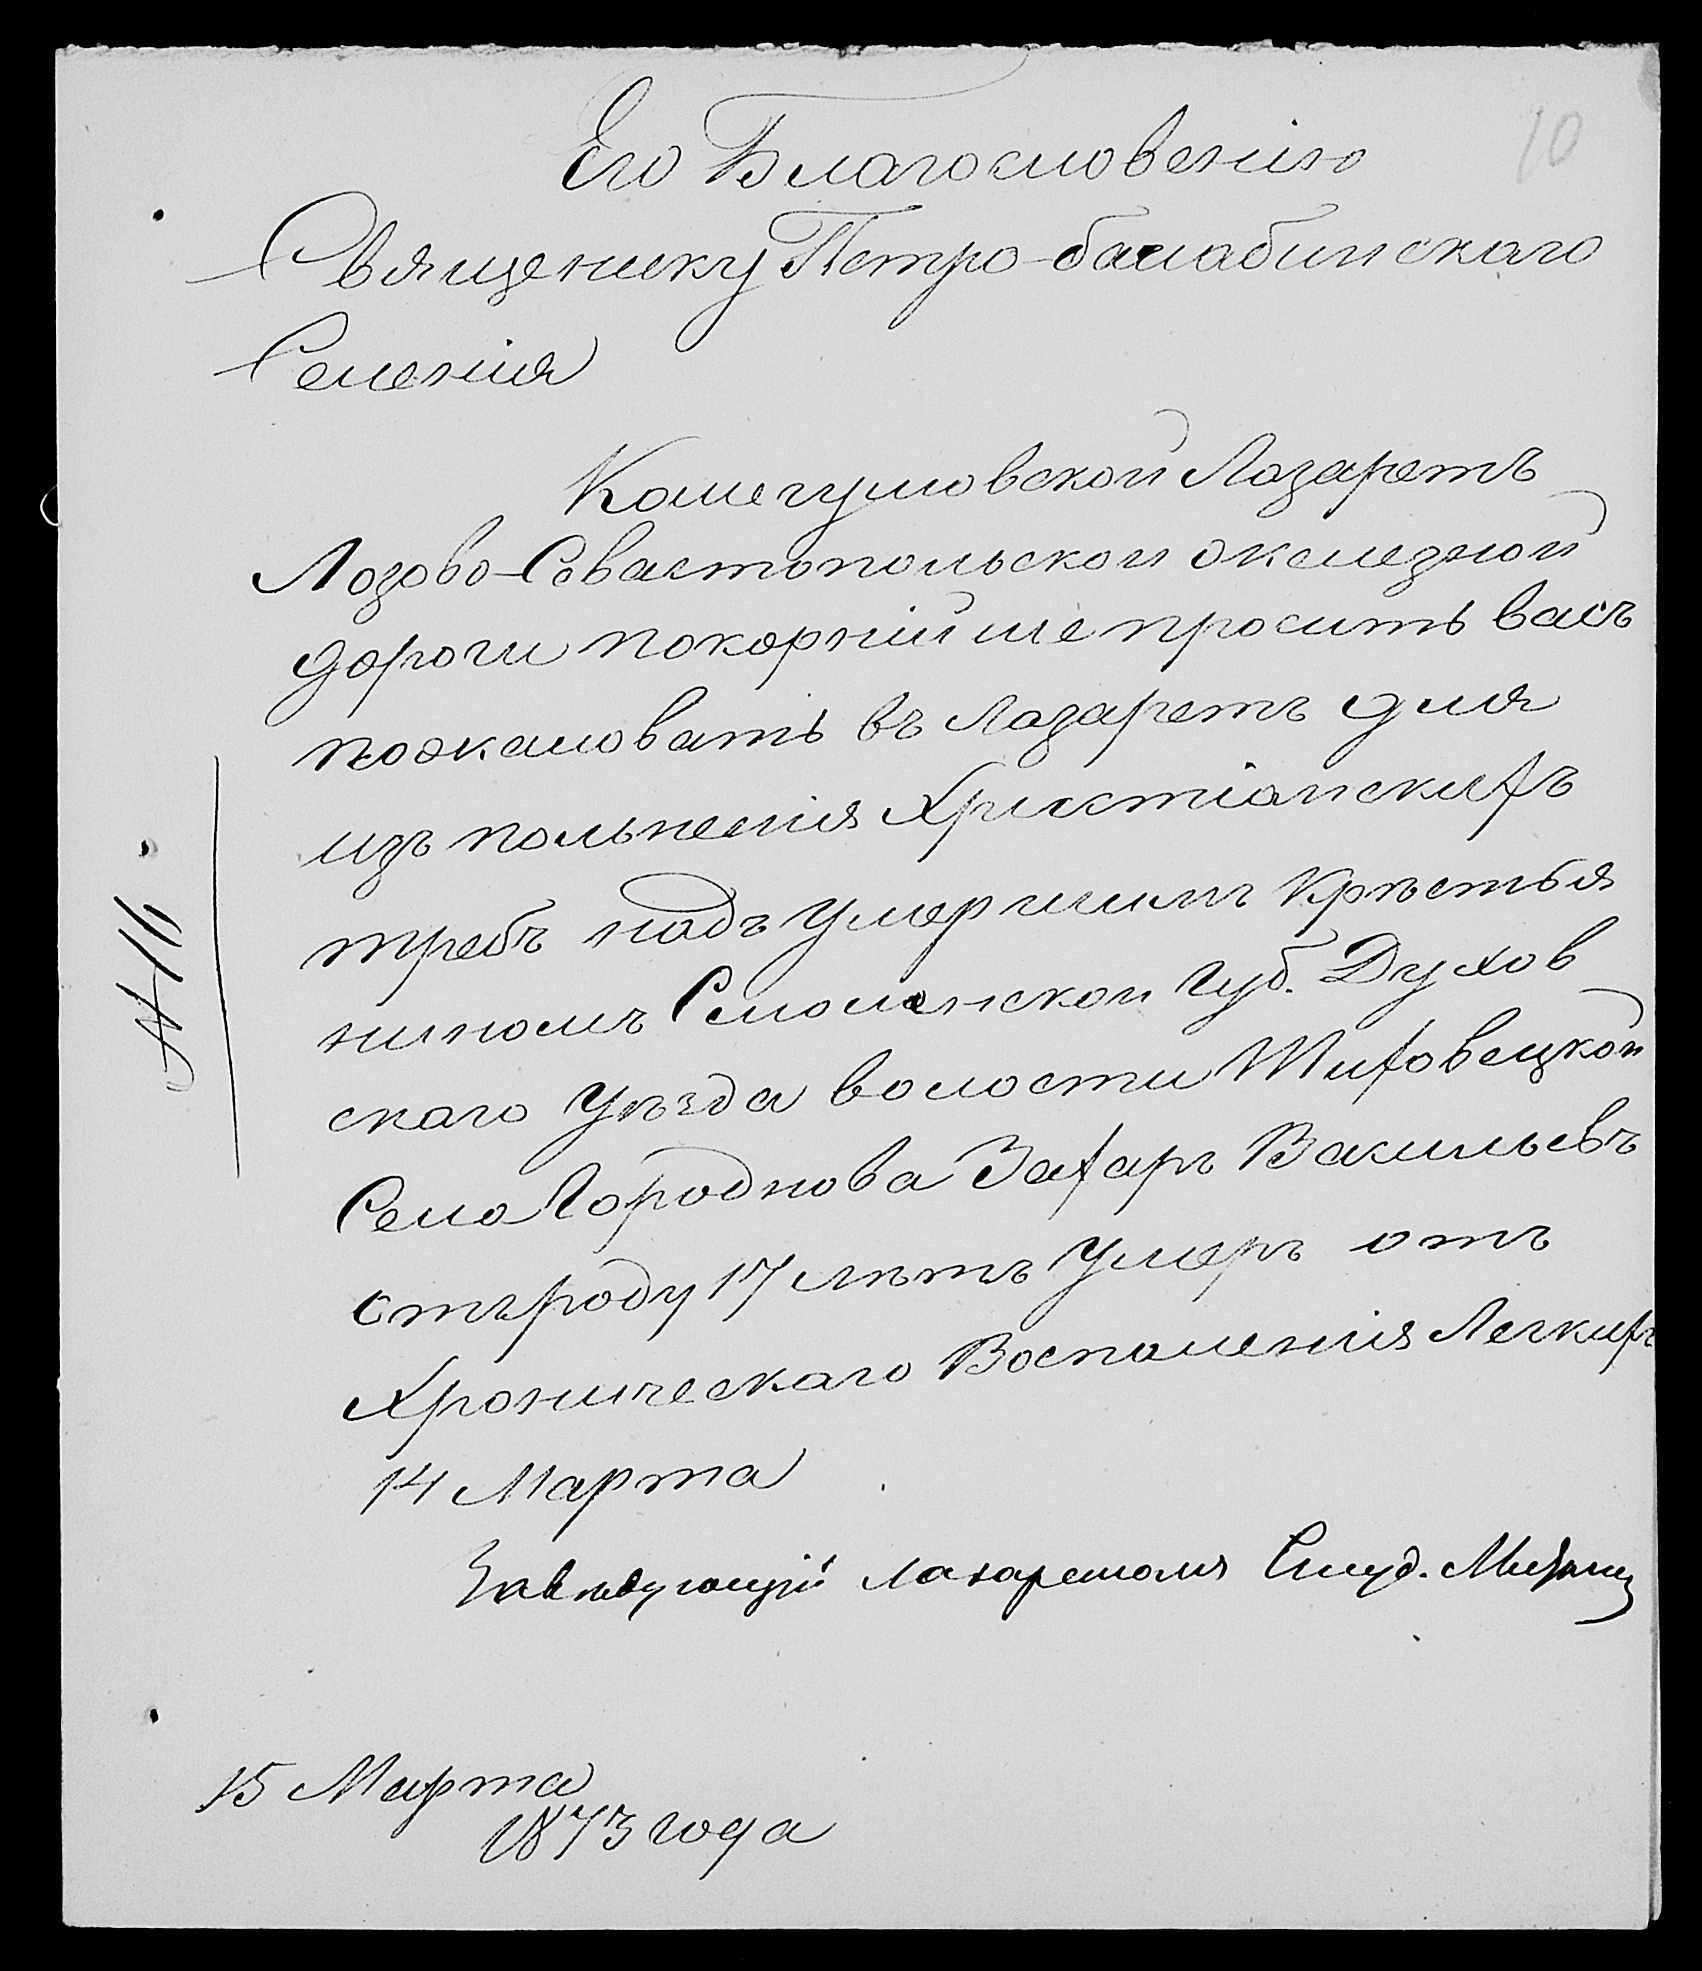 10
Его Благословенію
Священику Петро-балабинскаго
Селенія
Кошегумовской Лазаретъ
Лозово-Севастопольской железной
дороги покорнійше просить васъ
пожаловать въ Лазаретъ для
изъ польненія Христіанскихъ
требъ надъ Умершимъ Кръстья
ниномъ Смоленской Губ. Духов
скаго Уъзда волости Шиховецкой
Села Городнова Захаръ Васильевъ
отъ роду 17 лѣтъ Умеръ отъ
Хроническаго Воспаленія Легкихъ
14 Марта
Завѣдующій Лазаретомъ Студ.
№ 116
15 Марта
1873 года